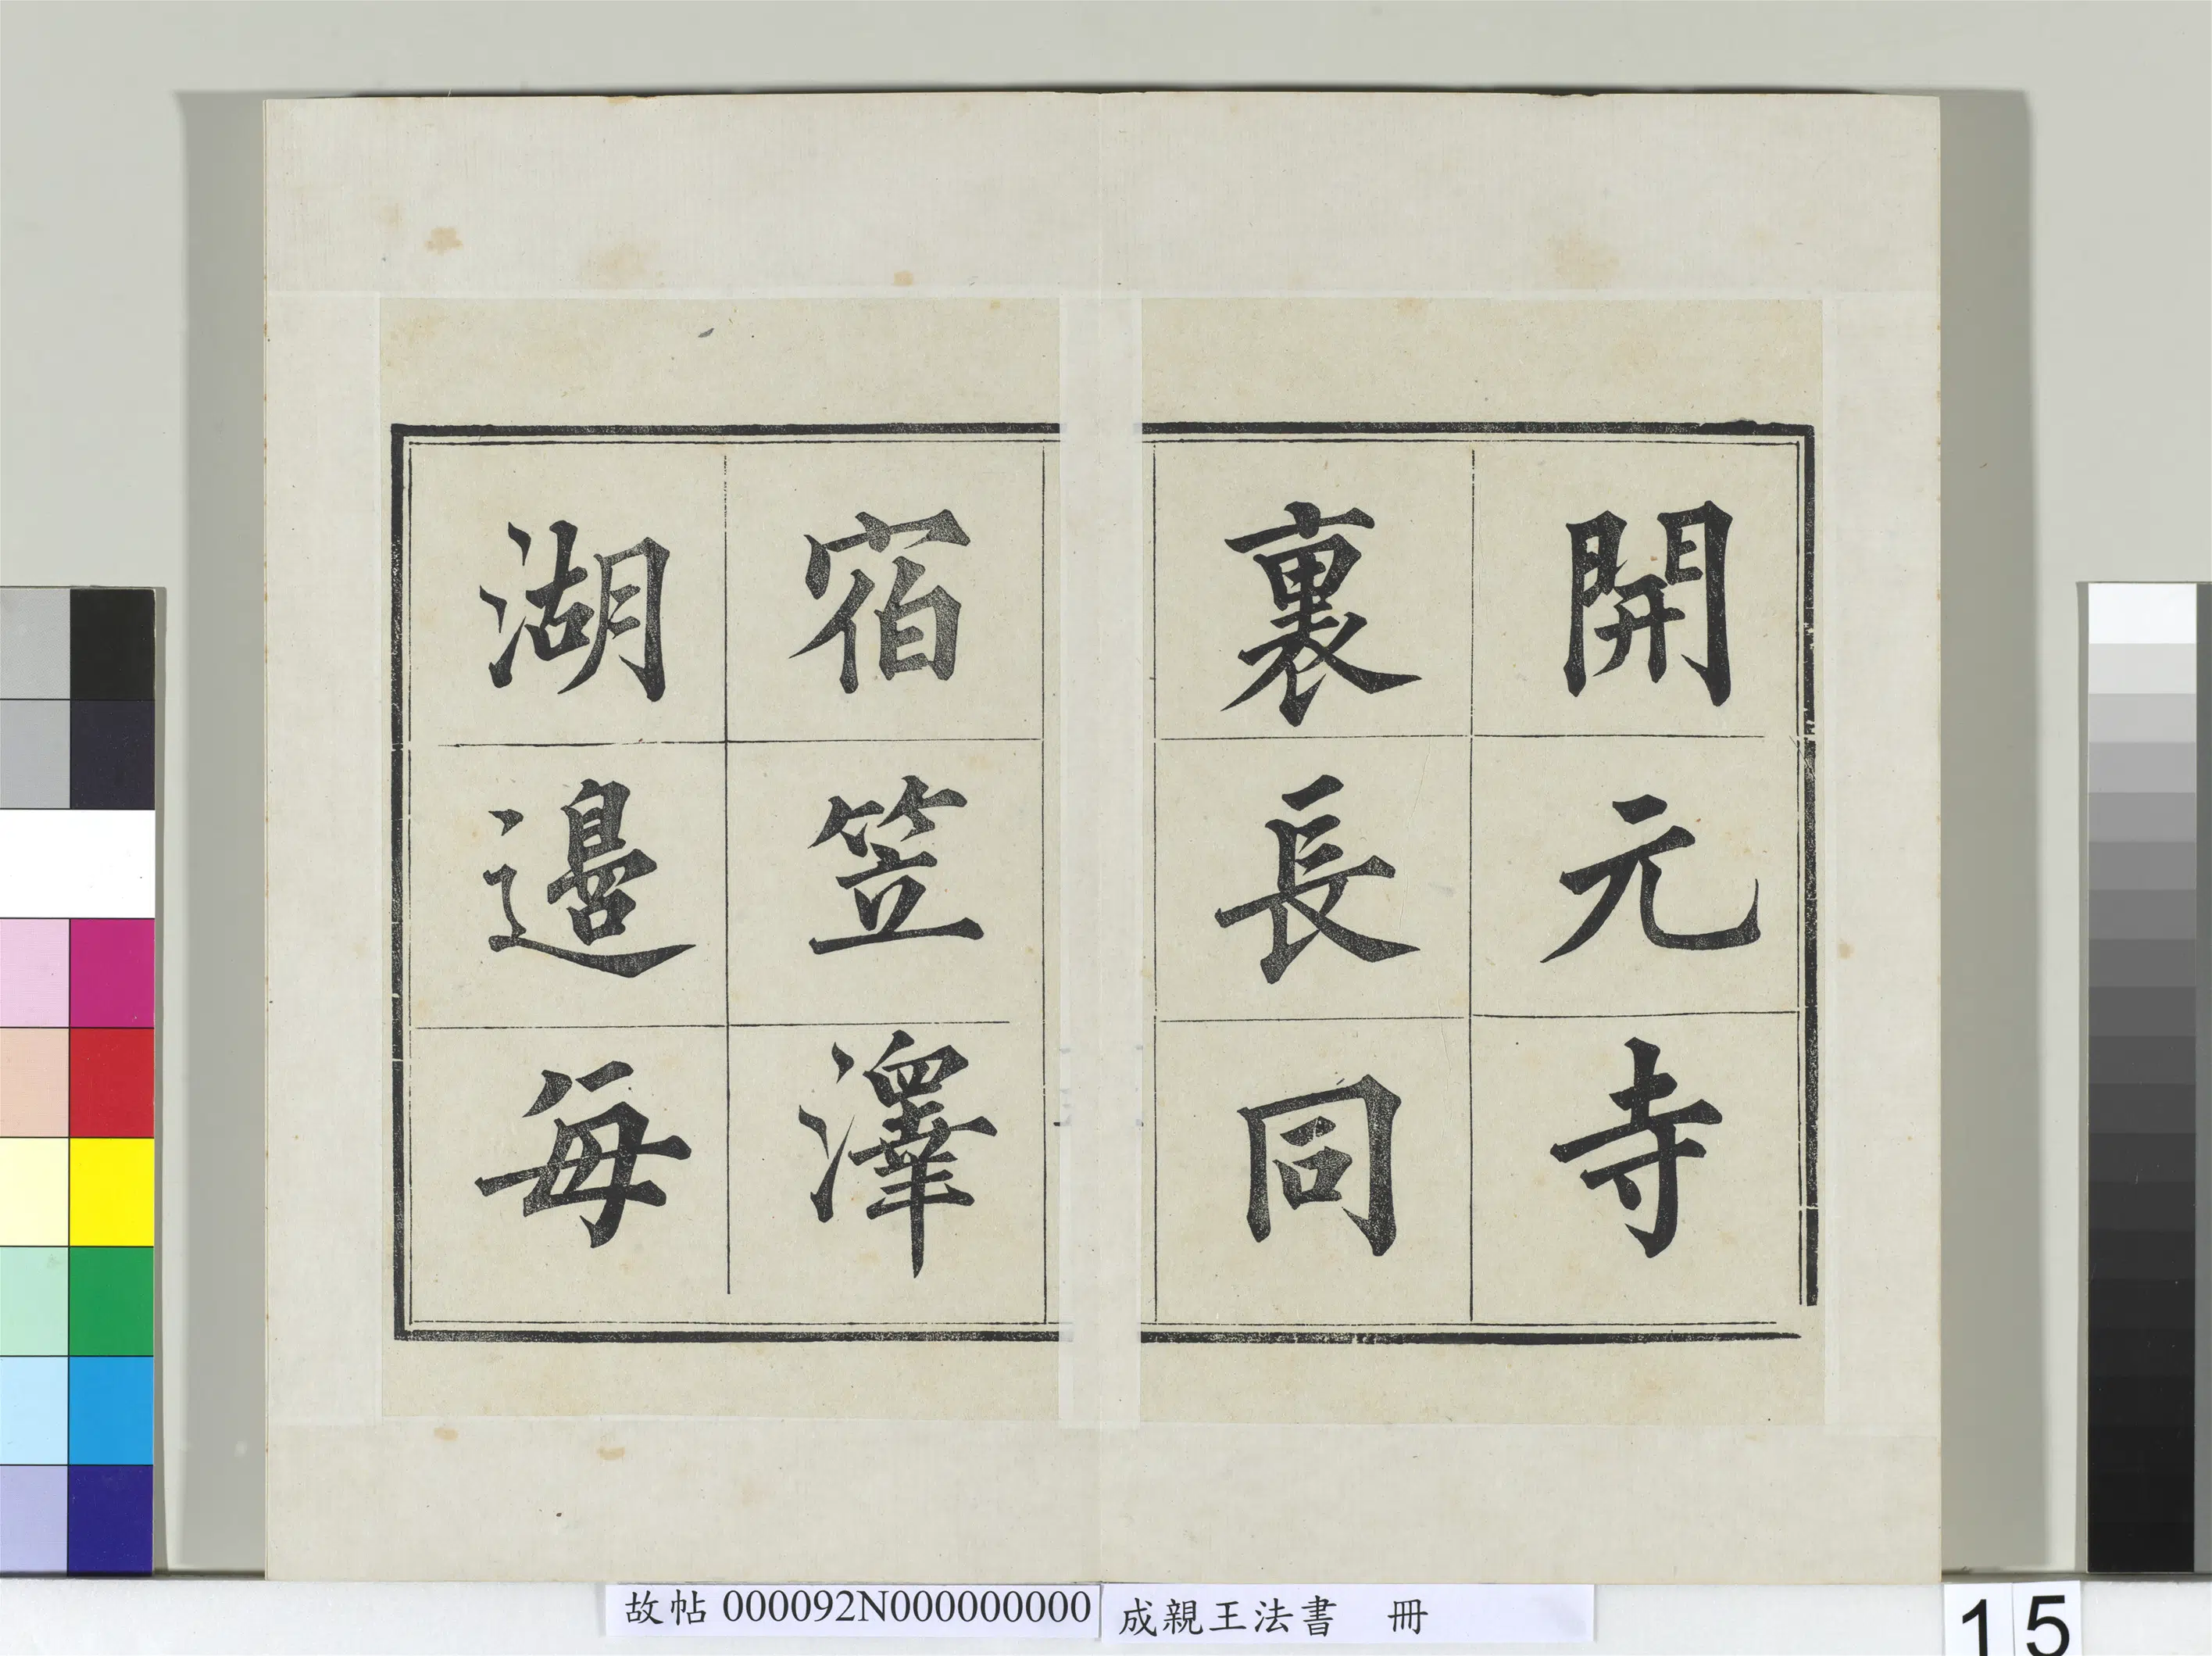 開元寺
裏長同
宿笠澤
湖邉每
故帖 000092N000000000
成親王法書 冊
15